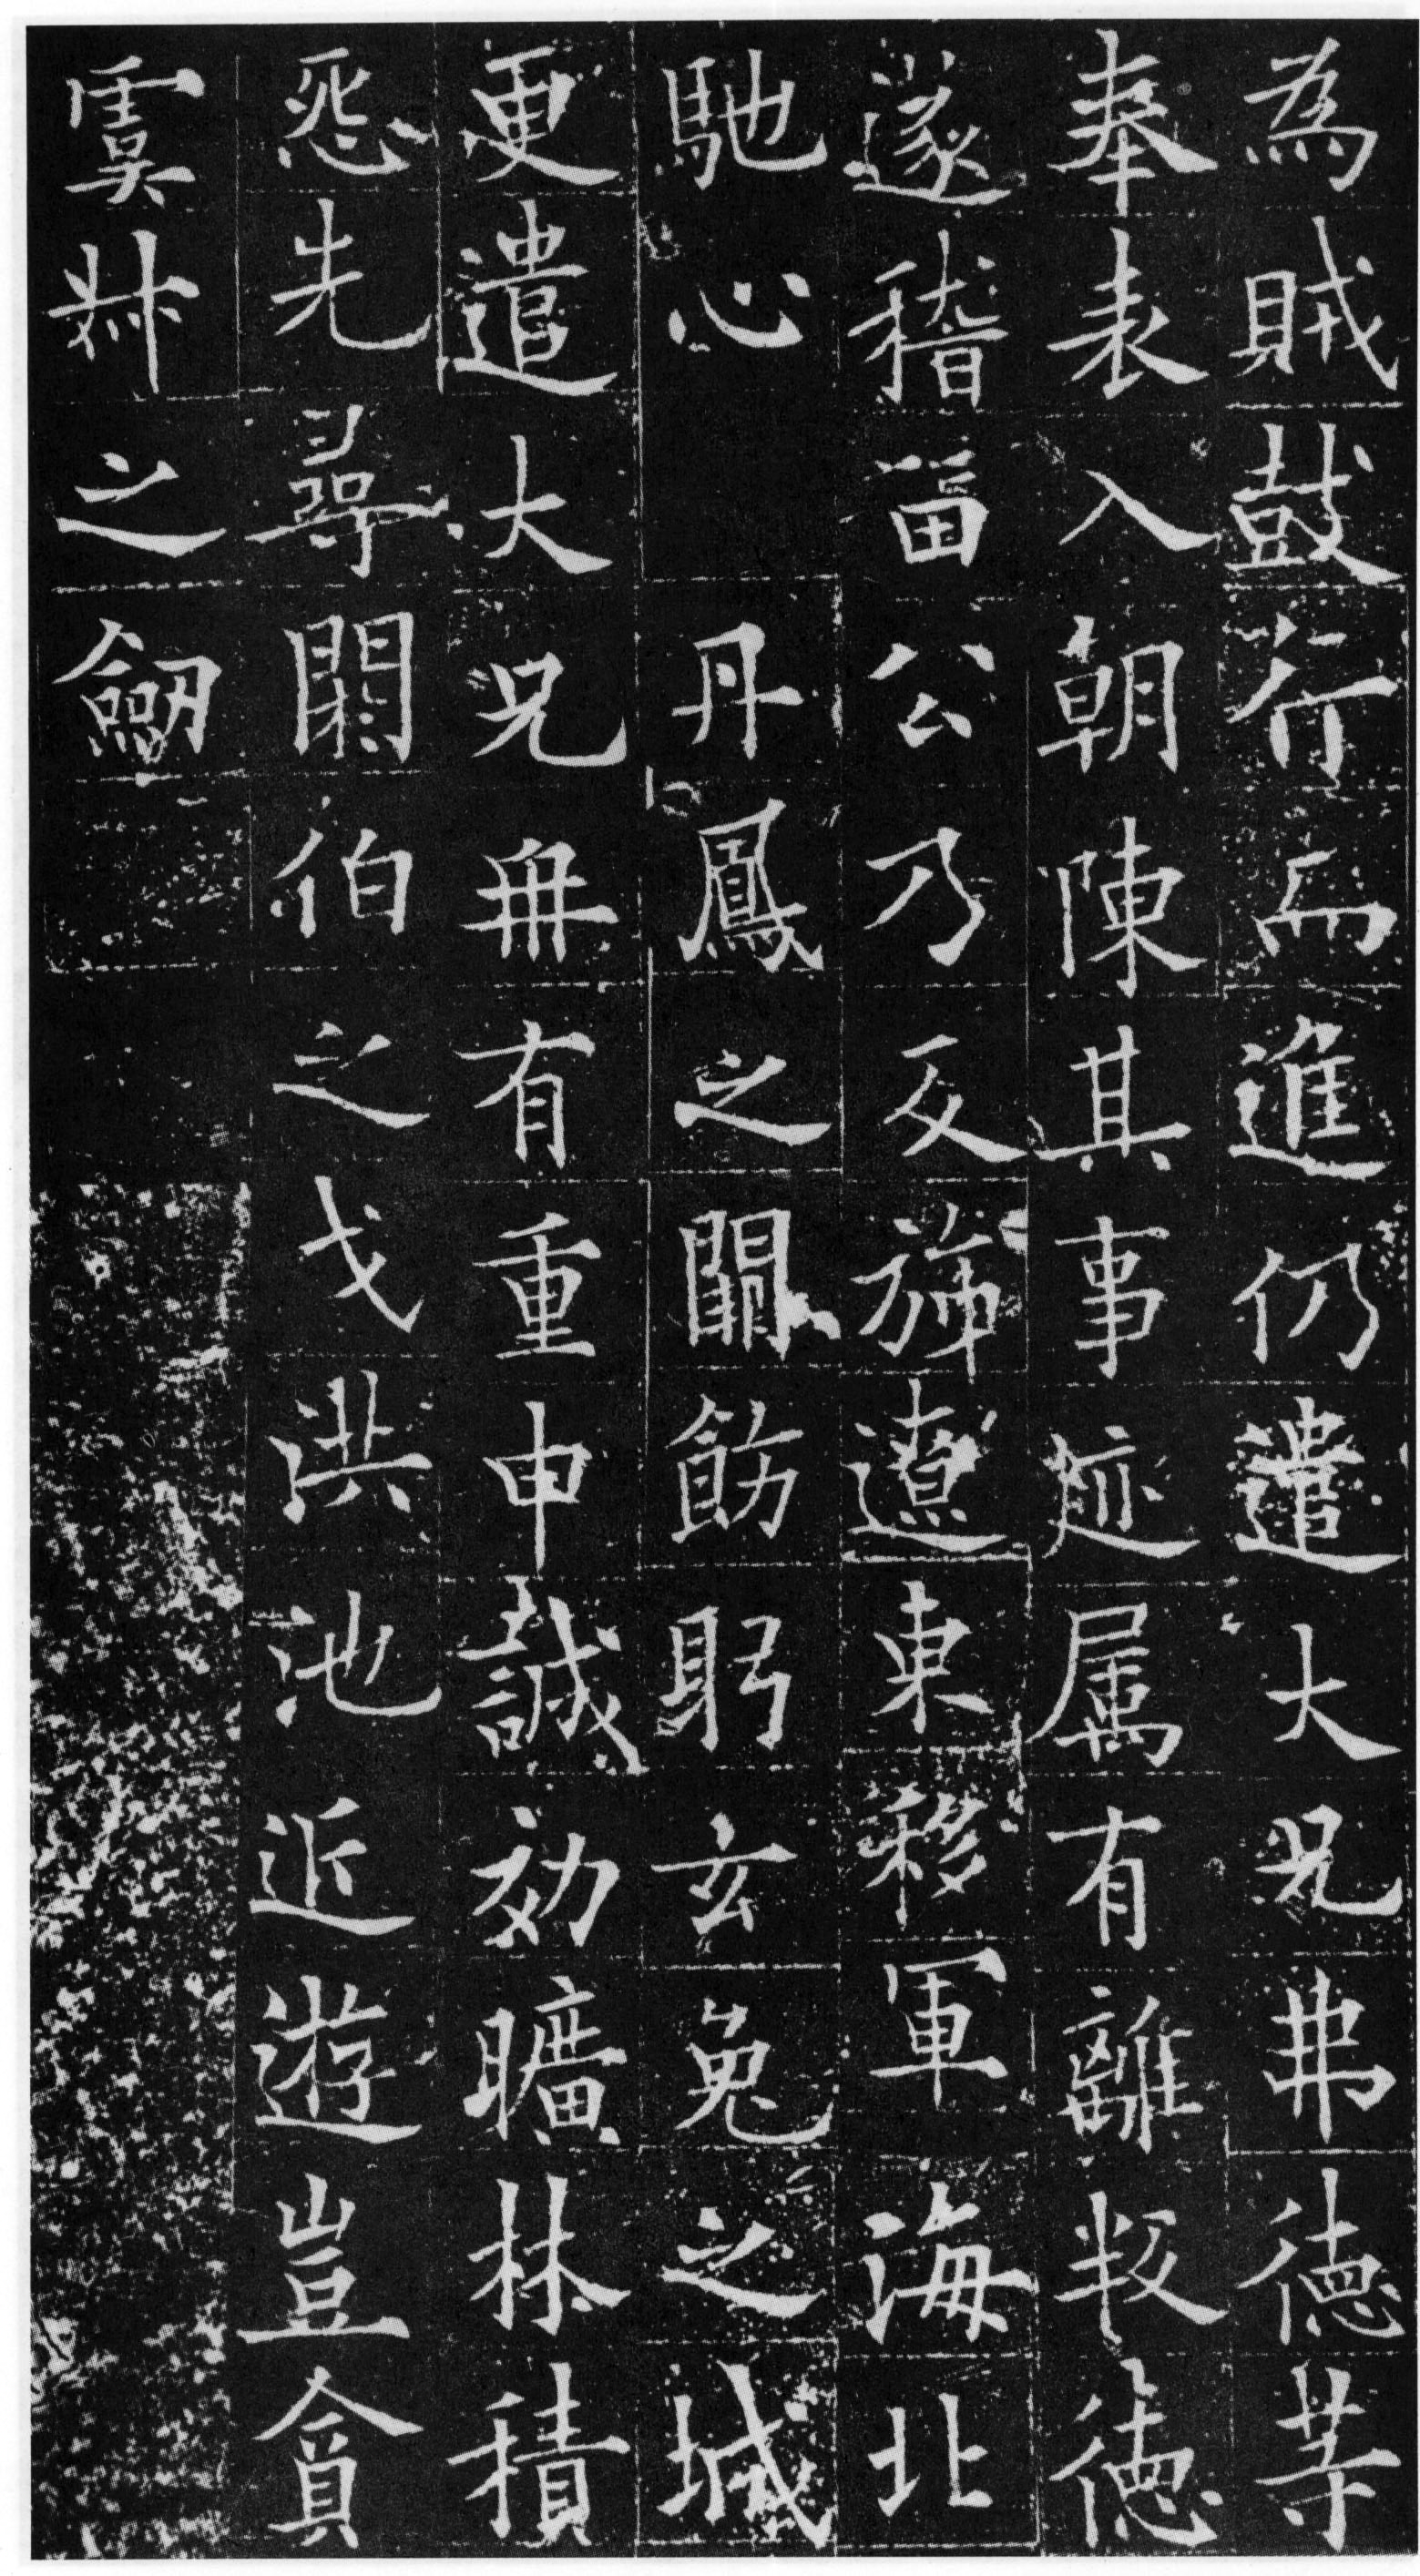 為賊鼓行而進仍遣大兄弗德等
奉表入朝陳其事迹属有離叛德
遂稽留公乃反旆遼東移軍海北
馳心 丹鳳之闕飭躬玄菟之城
更遣大兄冉有重申誠効曠林積
怨先尋閼伯之戈洪池近遊豈貪
虞叔之劒